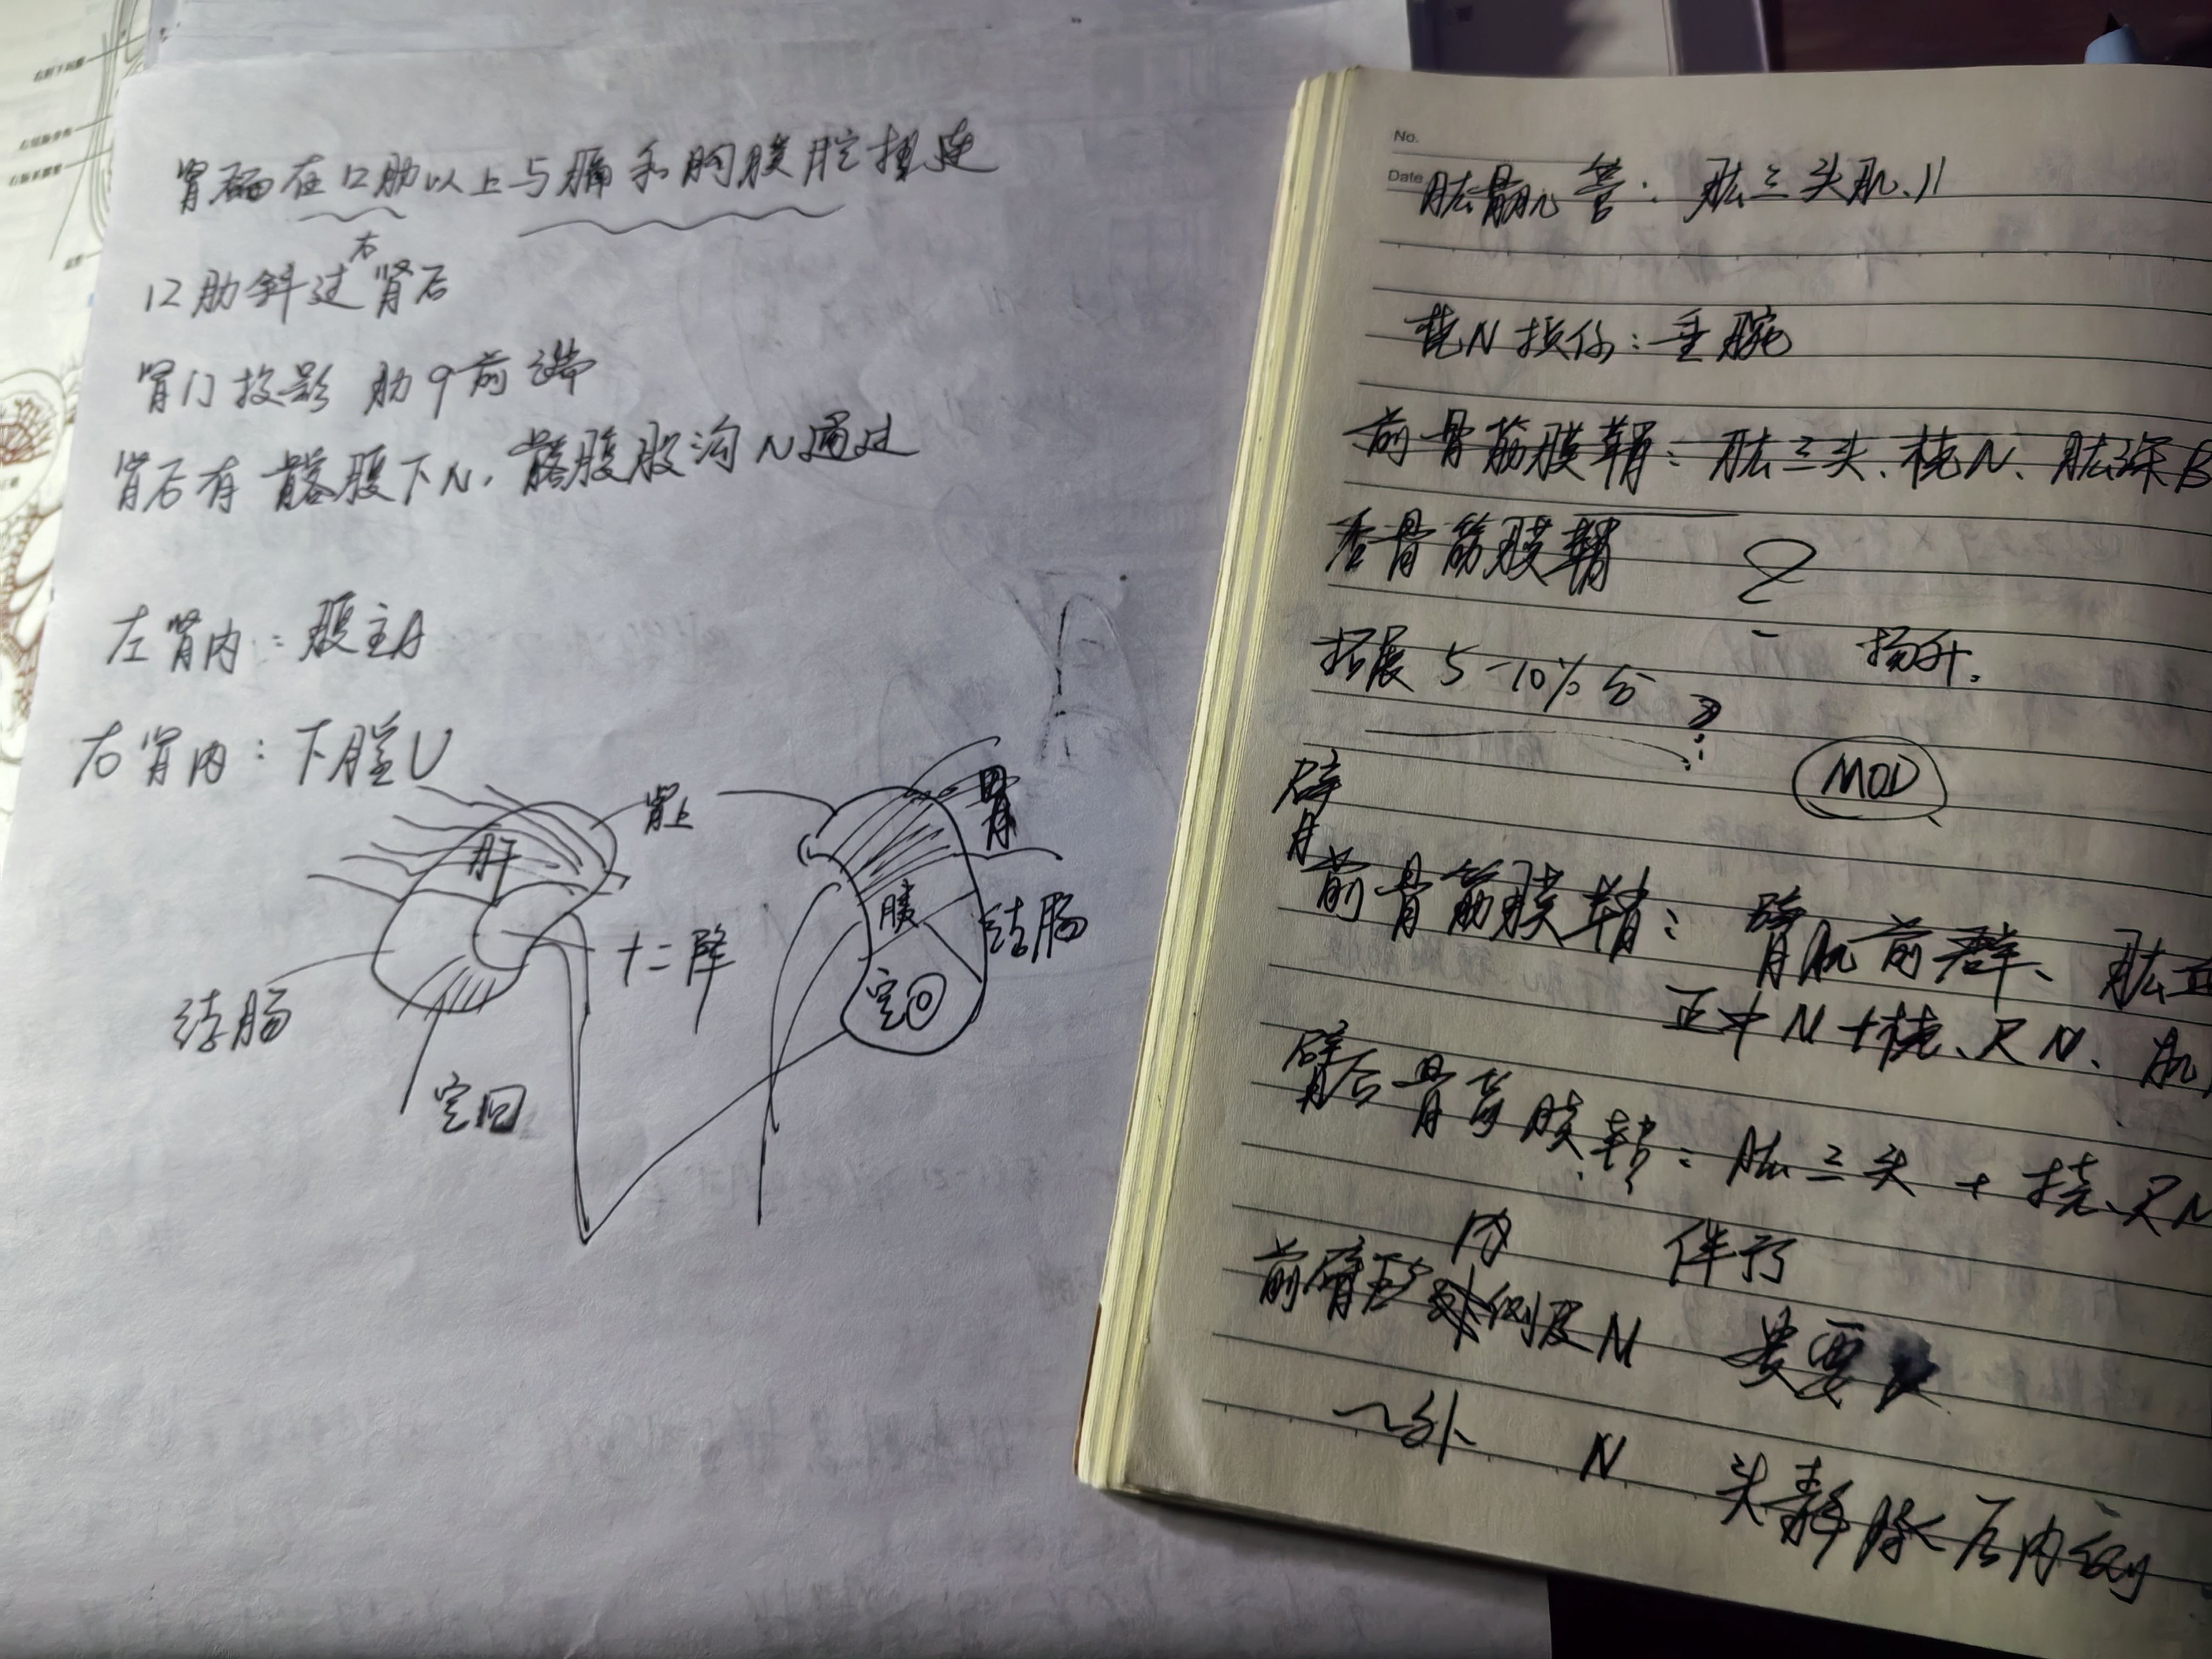 肾在12肋以上与膈和胸膜腔相连
12肋斜过右肾后
肾门投影 肋9前端
肾后有髂腹下N、髂腹股沟N通过
左肾内：腹主A
右肾内：下腔V
肝
肾上
胃
胰
结肠
十二降
空回
结肠
空回
No.
Date
肱骨肌管：肱三头肌、
桡N损伤：垂腕
前骨筋膜鞘：肱三头、桡N、肱深
骨筋膜鞘 ?
拓展 5-10% 分 ?
MOD
臂
前骨筋膜鞘：臂肌前群、肱
正中N+桡、尺N、肌
臂后骨筋膜鞘：肱三头+桡、尺N
内 伴行
前臂 侧皮N 贵要
～外 N 头静脉后内侧